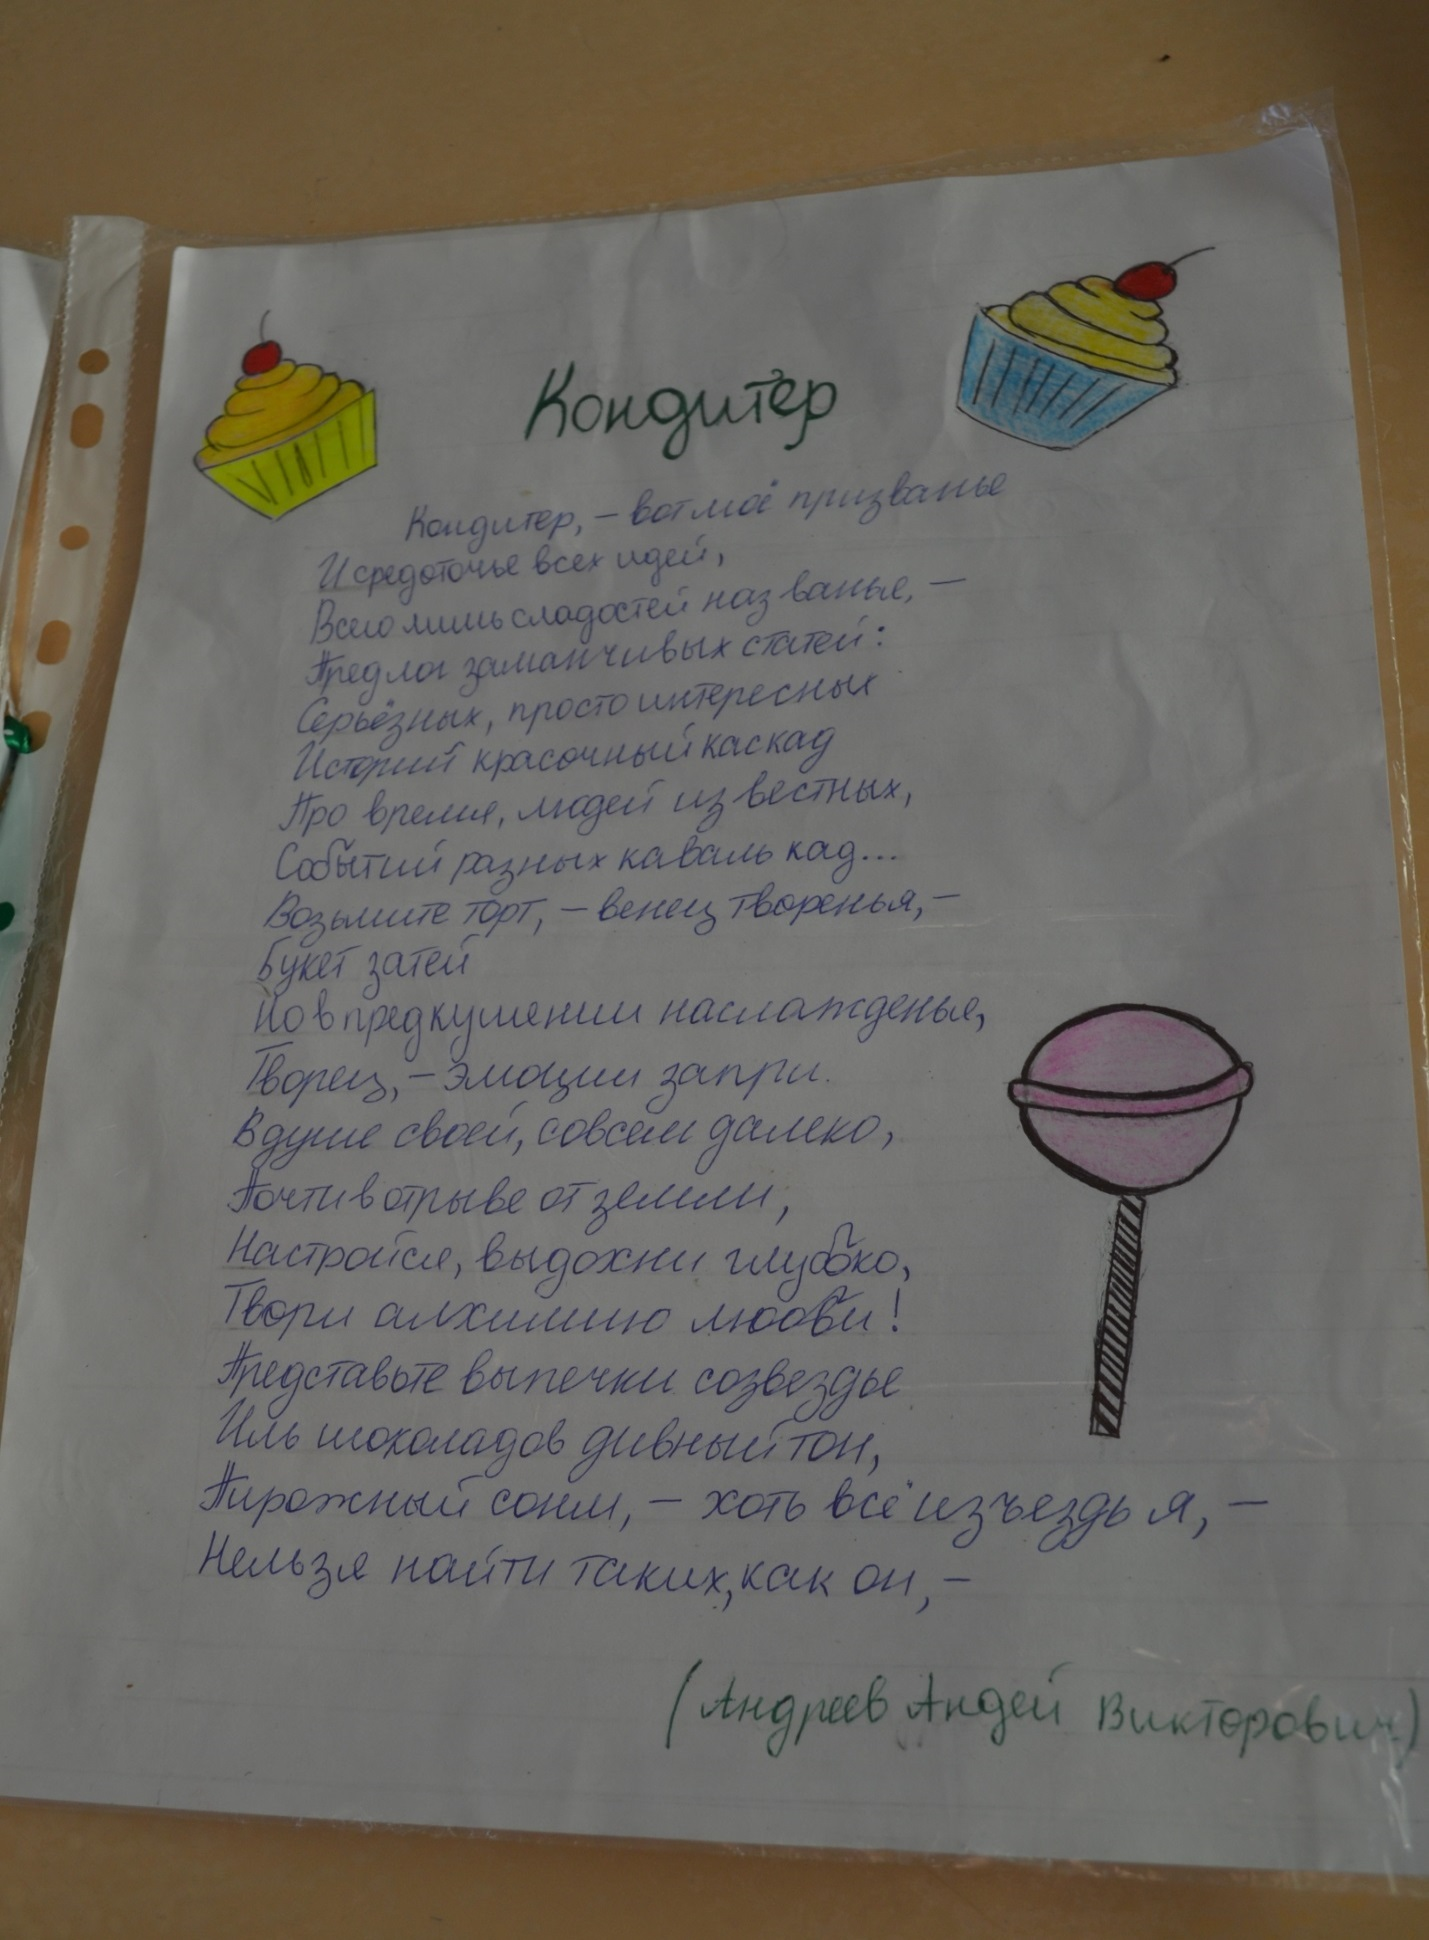 Кондитер
Кондитер, – вот моё призванье
И средоточье всех идей,
Всего лишь сладостей названье, –
Предлог заманчивых статей:
Серьёзных, просто интересных
Историй красочный каскад
Про время, людей известных,
Событий разных кавалькад...
Возьмите торт, – венец творенья, –
Букет затей
Но в предкушении наслажденья,
Творец, – эмоции запри.
В душе своей, совсем далеко,
Почти в отрыве от земли,
Настройся, выдохни глубоко,
Твори алхимию любви!
Представьте выпечки созвездье
Иль шоколадов дивный тон,
Пирожный сонм, – хоть всё изъездь я, –
Нельзя найти таких, как он, –
(Андреев Андей Викторович)